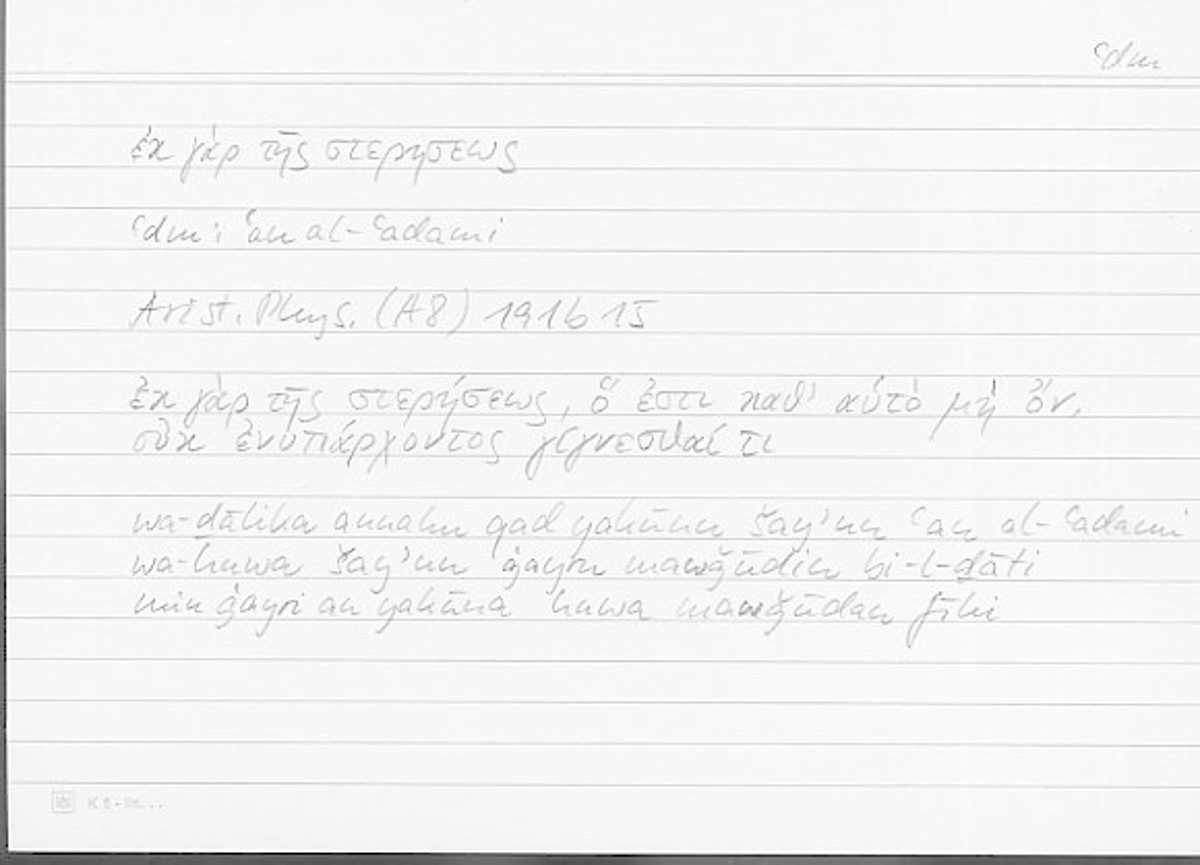 ʿdm
ἐκ γὰρ τῆς στερήσεως
ʿdm: ʿan al-ʿadami
Arist. Phys. (A8) 191b 15
ἐκ γὰρ τῆς στερήσεως, ὅ ἐστι καθ' αὑτὸ μὴ ὄν,
οὐκ ἐνυπάρχοντος γίγνεσθαί τι
wa-ḏālika annahu qad yakūnu šayʾun ʿan al-ʿadami
wa-huwa šayʾun ġayru mawǧūdin bi-l-ḏāti
min ġayri an yakūna huwa mawǧūdan fīhi